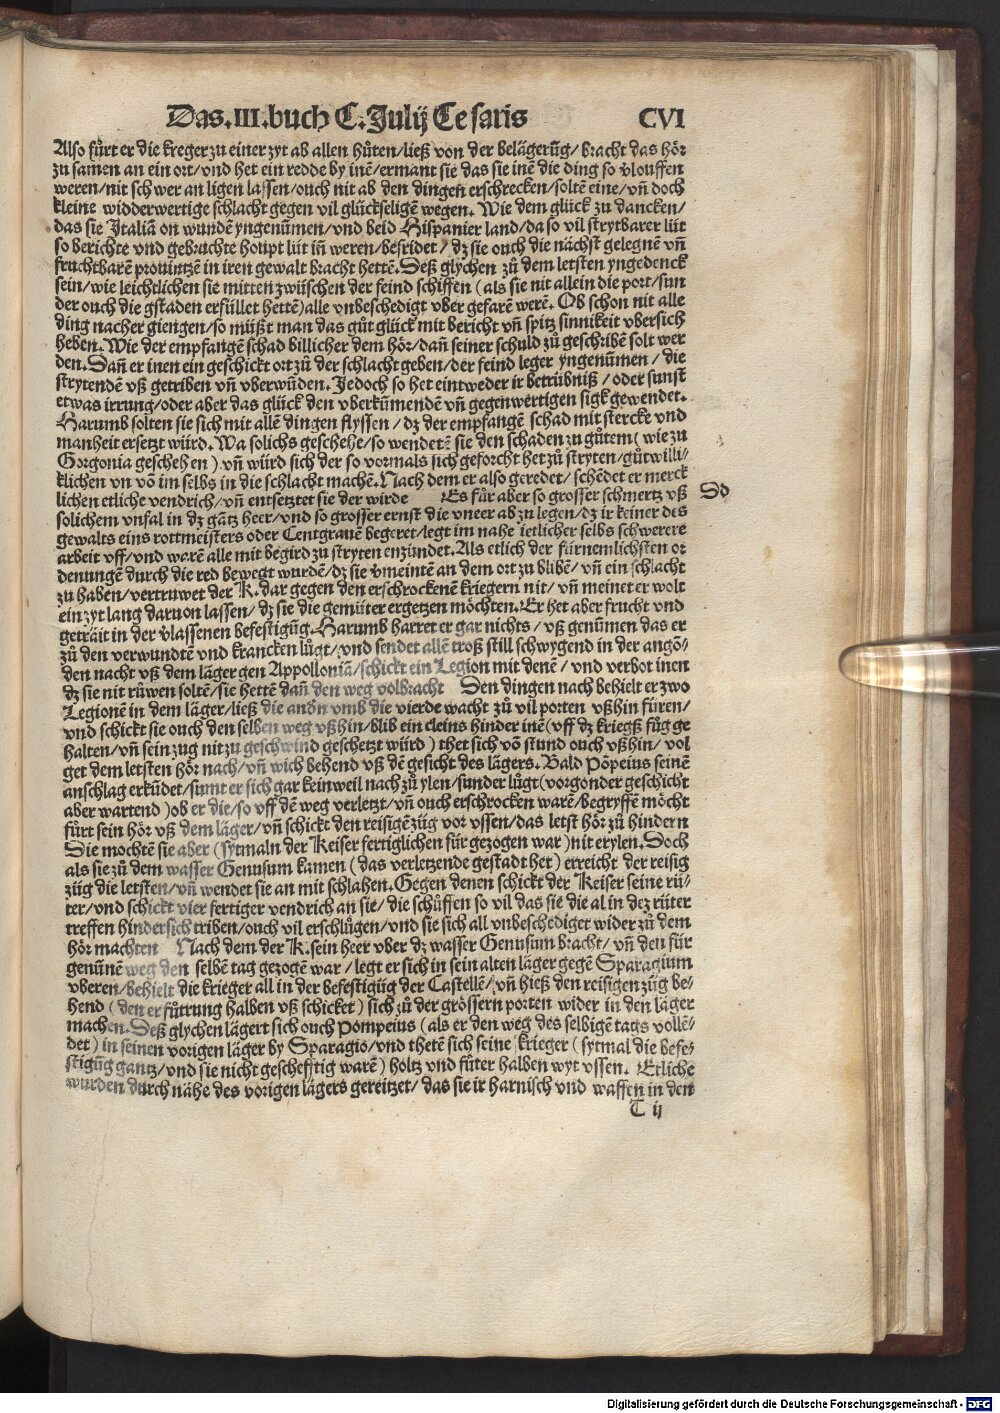 Das.III.buch C.Julij Ce saris CVI
Also fůrt er die kreger zu einer zyt ab allen hůten/ließ von der belägerũg/bracht das hör
zu samen an ein ort/vnd het ein redde by inẽ/ermant sie das sie inẽ die ding so v̓louffen
weren/nit sch wer an ligen lassen/ouch nit ab den dingen erschrecken/soltẽ eine/vñ doch
kleine widderwertige schlacht gegen vil glückseligẽ wegen. Wie dem glück zu dancken/
das sie Italiã on wundẽ yngenũmen/vnd beid Hispanier land/da so vil strytbarer lüt
so berichte vnd gebruchte houpt lüt iñ weren/befridet/dz sie ouch die nächst gelegnẽ vñ
fruchtbarẽ prouintzẽ in iren gewalt bracht hettẽ. Deß glychen zů dem letsten yngedenck
sein/wie leichtlichen sie mitten zwüschen der feind schiffen (als sie nit allein die port/sun
der ouch die gstaden erfüllet hettẽ)alle vnbeschedigt vber gefarẽ werẽ. Ob schon nit alle
ding nacher giengen/so můßt man das gůt glück mit bericht vñ spitz sinnikeit vbersich
heben. Wie der empfangẽ schad billicher dem hör/dañ seiner schuld zů geschribẽ solt wer
den. Dañ er inen ein geschickt ort zů der schlacht geben/der feind leger yngenũmen/die
strytendẽ vß getriben vñ vberwũden. Jedoch so het eintweder ir betrübniß/oder sunst
etwas irrung/oder aber das glück den vberkũmendẽ vñ gegenwertigen sigk gewendet.
Darumb solten sie sich mit allẽ dingen flyssen/dz der empfangẽ schad mit stercke vnd
manheit ersetzt würd. Wa solichs geschehe/so wendetẽ sie den schaden zu gůtem(wie zu
Gorgonia geschehen) vñ würd sich der so vormals sich geforcht het zů stryten/gůtwilli/
klichen vn võ im selbs in die schlacht machẽ. Nach dem er also geredet/schẽdet er merck
lichen etliche vendrich/vñ entsetztet sie der wirde Es fůr aber so grosser schmertz vß So
solichem vnfal in dz gãtz heer/vnd so grosser ernst die vneer ab zu legen/dz ir keiner des
gewalts eins rottmeisters oder Centgrauẽ begeret/legt im nahe ietlicher selbs schwerere
arbeit vff/vnd warẽ alle mit begird zu stryten enzündet. Als etlich der fürnemlichsten or
denungẽ durch die red bewegt wurdẽ/dz sie v̓meintẽ an dem ort zu blibẽ/vñ ein schlacht
zu haben/vertruwet der K. dar gegen den erschrockenẽ kriegern nit/vñ meinet er wolt
ein zyt lang daruon lassen/dz sie die gemüter ergetzen möchten. Er het aber frucht vnd
geträit in der v̓lassenen befestigũg. Darumb harret er gar nichts/vß genũmen das er
zů den verwundtẽ vnd krancken lůgt/vnd sendet allẽ troß still schwygend in der angõ/
den nacht vß dem läger gen Appolloniã/schickt ein Legion mit denẽ/vnd verbot inen
dz sie nit rüwen soltẽ/sie hettẽ dañ den weg volbracht Den dingen nach behielt er zwo
Legionẽ in dem läger/ließ die andn̄ vmb die vierde wacht zů vil porten vßhin füren/
vnd schickt sie ouch den selben weg vßhin/blib ein cleins hinder inẽ(vff dz kriegß fůg ge
halten/vñ sein zug nit zu geschwind geschetzt würd) thet sich võ stund ouch vßhin/vol
get dem letsten hör nach/vñ wich behend vß dẽ gesicht des lägers. Bald Põpeius seinẽ
anschlag erkũdet/sumt er sich gar kein weil nach zů ylen/sunder lůgt(vorgonder geschicht
aber wartend)ob er die/so vff dẽ weg verletzt/vñ ouch erschrocken warẽ/begryffẽ möcht
fůrt sein hör vß dem läger/vñ schickt den reisigẽ züg vor vssen/das letst hör zů hindern
Die mochtẽ sie aber (sytmaln der Keiser fertiglichen für gezogen war)nit erylen. Doch
als sie zů dem wasser Genusum kamen (das verletzende gestadt het) erreicht der reisig
züg die letsten/vñ wendet sie an mit schlahen. Gegen denen schickt der Keiser seine rü/
ter/vnd schickt vier fertiger vendrich an sie/die schüffen so vil das sie die al in dez rüter
treffen hindersich triben/ouch vil erschlügen/vnd sie sich all vnbeschediget wider zů dem
hör machten Nach dem der K. sein heer vber dz wasser Genusum bracht/vñ den für
genũnẽ weg den selbẽ tag gezogẽ war/legt er sich in sein alten läger gegẽ Sparagium
vberen/behielt die krieger all in der befestigũg der Castellẽ/vñ hieß den reisigen züg be/
hend (den er fůtrung halben vß schicket) sich zů der grössern porten wider in den läger
machen. Deß glychen lägert sich ouch Pompeius (als er den weg des selbigẽ tags vollẽ/
det) in seinen vorigen läger by Sparagio/vnd thetẽ sich seine krieger (sytmal die befe/
stigũg gantz/vnd sie nicht gescheftig warẽ) holtz vnd fůter halben wyt vssen. Etliche
wurden durch nähe des vorigen lägers gereitzet/das sie ir harnisch vnd waffen in den
T ij
Digitalisierung gefördert durch die Deutsche Forschungsgemeinschaft - DFG